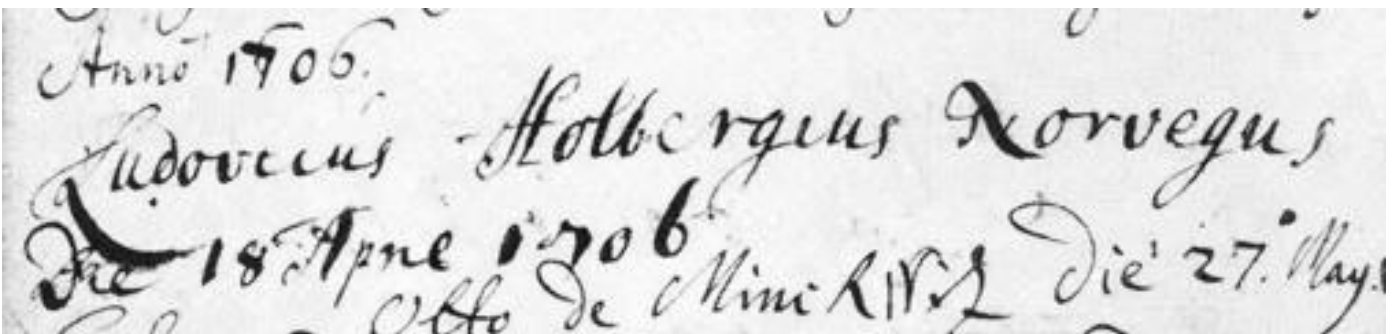 Anno 1706.
Ludovicus Holbergius Norvegus
Die 18 Aprile 1706
Otto de Minckwitz Die 27. May.